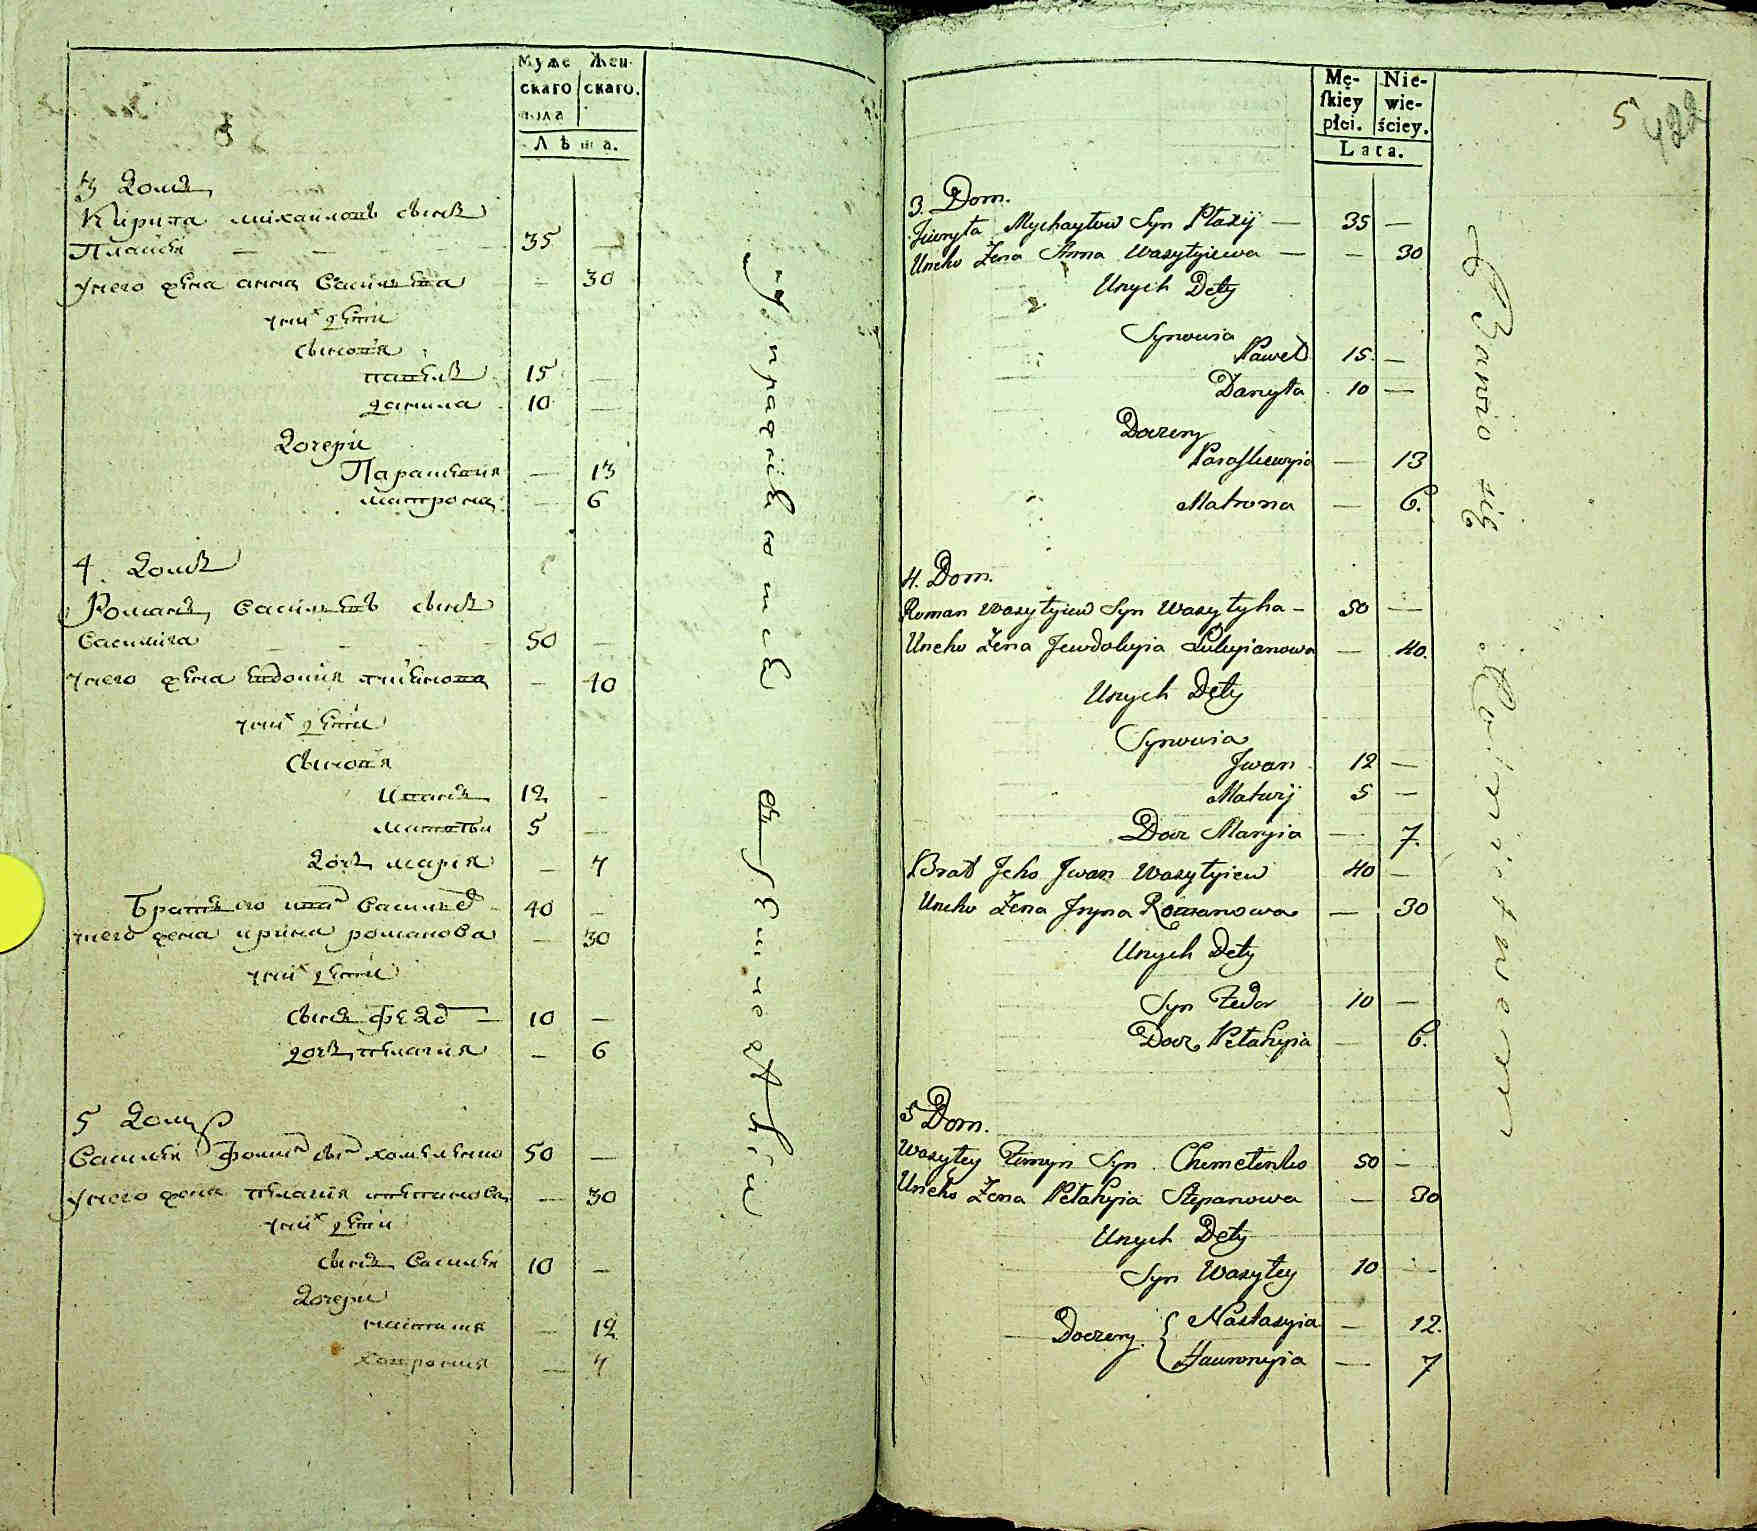 Муже
скаго
пола
Жен-
скаго.
Лѣта.
3 Домъ
Кирила михайловъ сынъ
Плаксѣй — 35 —
Унего жена анна Василева — 30
унихъ дѣти
сыновя
павелъ 15 —
данила 10 —
Дочери
Парасковия — 13
матрона — 6
4. Домъ
Романъ Василевъ сынъ
Василига — 50 —
унего жена — 40
унихъ дѣти
Сыновя
Иванъ 12 —
матвѣй 5 —
дочъ мария — 7
Братъ его иванъ Василевъ 40 —
унего жена ирина романова — 30
унихъ дѣти
сынъ федоръ — 10 —
дочъ пелагия — 6
5 Домъ
Василей сынъ 50 —
Унего жена пелагия степанова — 30
унихъ дѣти
сынъ Василей 10 —
Дочери
настасия — 12
— 7
Mę-
skiey
płci.
Nie-
wie-
ściey.
Lata.
5
422
3. Dom.
Mychayłow Syn Płaxij — 35 —
Uneho Żena Anna Wasyłyiewa — — 30
Unych Dety
Synowia
Paweł 15. —
Danyło 10 —
Doczery
Paraskiewyia — 13
Matrona — 6.
4. Dom.
Roman Wasyłyiew Syn Wasyłyha — 50 —
Uneho Żena Jewdokyia Łukyianowa — 40.
Unych Dety
Synowia
Jwan 12 —
Matwij 5 —
Docz Maryia — 7.
Brat Jeho Jwan Wasyłyiew 40 —
Uneho Żena Jryna Romanowa — 30
Unych Dety
Syn Fedor 10 —
Docz Pełahyia — 6.
5 Dom.
Wasyłey Syn Chometenko 50 —
Uneho Żena Pełahyia Stepanowa — 30
Unych Dety
Syn Wasyłey 10 —
Doczery { Nastasyia — 12.
Hawronyia — 7